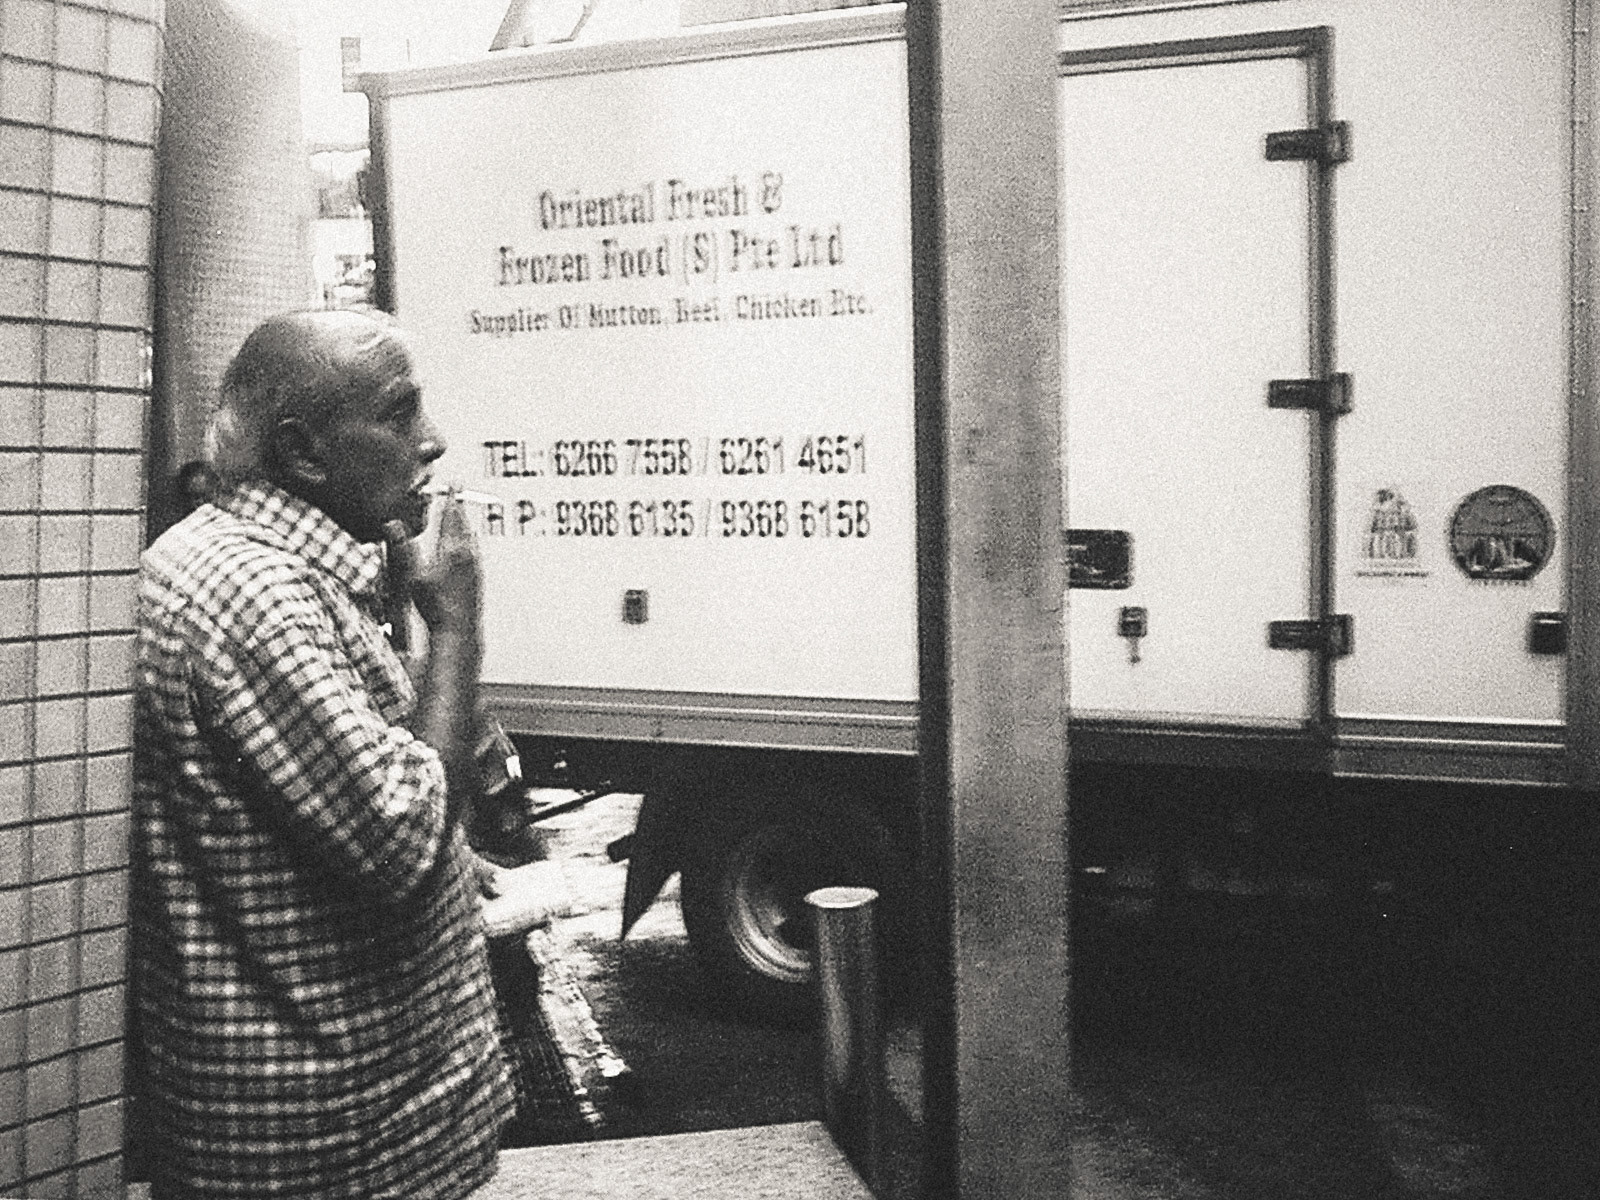 Oriental Fresh &
Frozen Food (S) Pte Ltd
Supplier Of Mutton, Beef, Chicken Etc.
TEL: 6266 7558 / 6261 4651
H P: 9368 6135 / 9368 6158